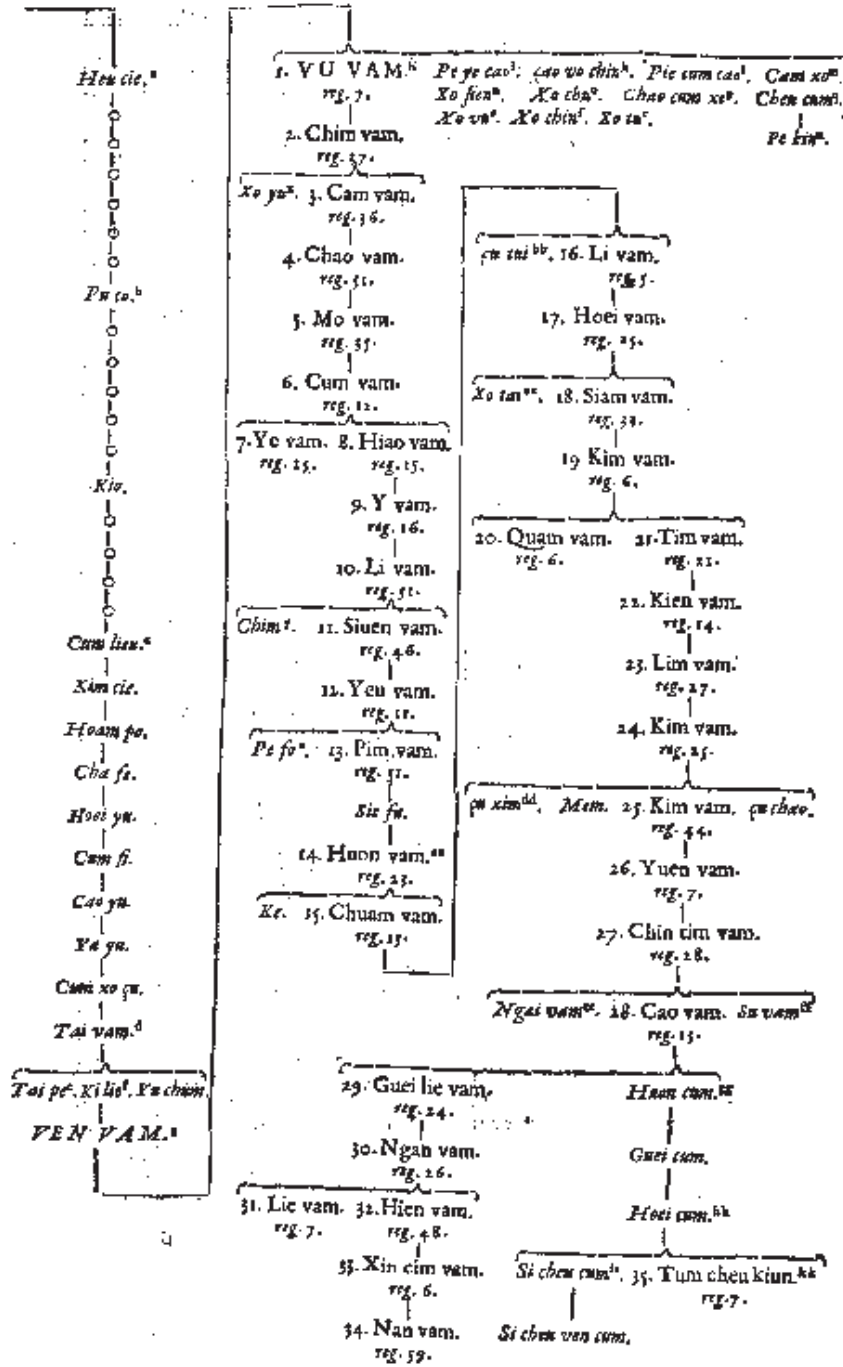 Heu cie.ª
Pu to.ᵇ
Kio.
Cum lieu.ᶜ
Xim cie.
Hoam po.
Cha fe.
Hoei yu.
Cum fi.
Cao yu.
Ya yu.
Cum xo çu.
Tai vam.ᵈ
Tai peᵉ. Ki lieᶠ. Yu chum.
VEN VAM.ᵍ
1. VU VAM.ʰ Pe ye caoⁱ. Cao vo chinᵏ. Pie cum caoˡ. Cam xoᵐ.
reg. 7. Xo fienⁿ. Xo chuᵒ. Chao cum xeᵖ. Chen cum
Xo vu. Xo chin. Xo tu.
Pe kin.
2. Chim vam.
reg. 37.
Xo yu. 3. Cam vam.
reg. 36.
4. Chao vam.
reg. 51.
5. Mo vam.
reg. 35.
6. Cum vam.
reg. 12.
7. Ye vam. 8. Hiao vam.
reg. 25. reg. 15.
9. Y vam.
reg. 16.
10. Li vam.
reg. 51.
Chim. 11. Siuen vam.
reg. 46.
12. Yeu vam.
reg. 11.
Pe fo. 13. Pim vam.
reg. 51.
Sie fu.
14. Huon vam.
reg. 23.
Ke. 15. Chuam vam.
reg. 15.
çu tui ᵇᵇ. 16. Li vam.
reg. 5.
17. Hoei vam.
reg. 25.
Xo tai. 18. Siam vam.
reg. 33.
19 Kim vam.
reg. 6.
20. Quam vam. 21. Tim vam.
reg. 6. reg. 21.
22. Kien vam.
reg. 14.
23. Lim vam.
reg. 27.
24. Kim vam.
reg. 25.
çu xim ᵈᵈ. Mem. 25. Kim vam. çu chao.
reg. 44.
26. Yuen vam.
reg. 7.
27. Chin tim vam.
reg. 28.
Ngai vam. 28. Cao vam. Su vam
reg. 15.
29. Guei lie vam. Huon cum.
reg. 24.
Guei cum.
30. Ngan vam.
reg. 26.
Hoei cum.ʰʰ
31. Lie vam. 32. Hien vam.
reg. 7. reg. 48.
33. Xin cim vam.
reg. 6.
Si cheu cum. 35. Tum cheu kiun.ᵏᵏ
reg. 7.
34. Nan vam.
reg. 59.
Si cheu ven cum.